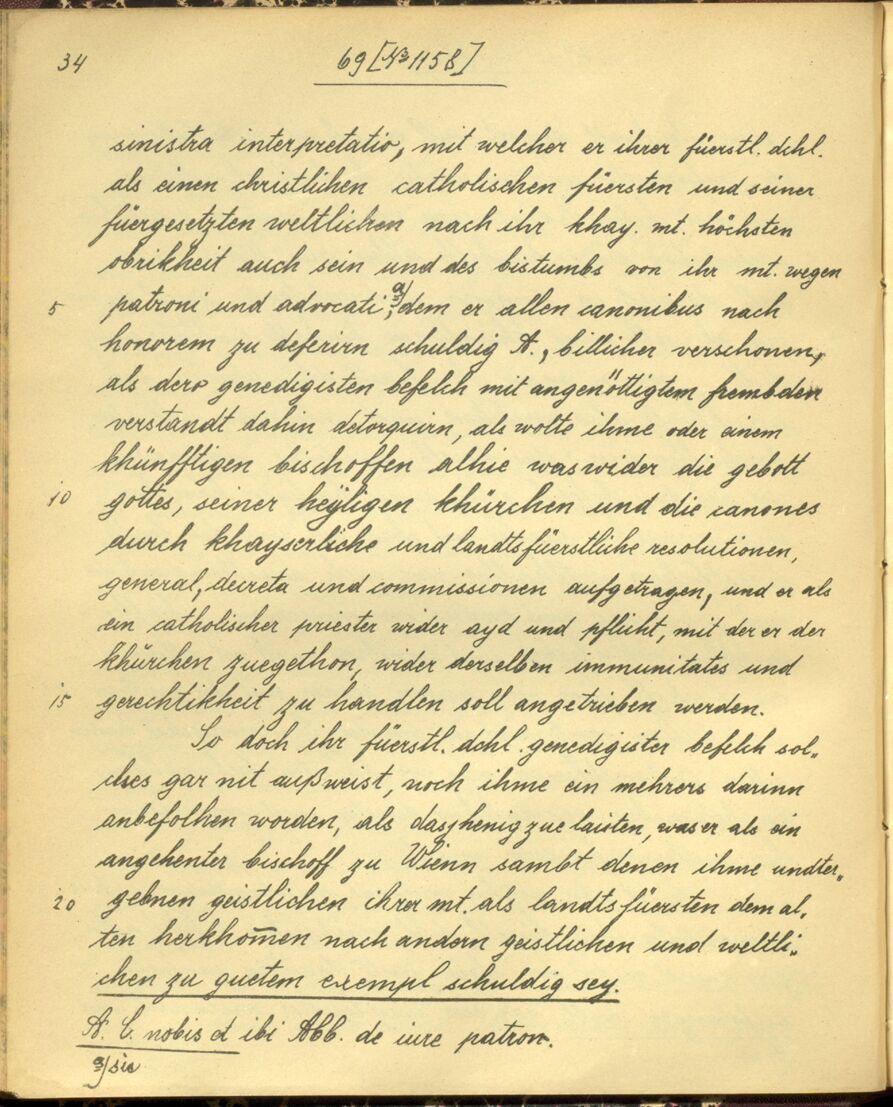 34
69 [№ 1158]
sinistra interpretatio, mit welcher er ihrer füerstl. dchl.
als einen christlichen catholischen füersten und seiner
füergesetzten weltlichen nach ihr khay. mt. höchsten
obrikheit auch sein und des bistumbs von ihr mt. wegen
5 patroni und advocati a), dem er allen canonibus nach
honorem zu deferirn schuldig A., billicher verschonen,
als dero genedigisten befelch mit angenöttigtem frembden
verstandt dahin detorquirn, als wolte ihme oder einem
khünfftigen bischoffen alhie was wider die gebott
10 gottes, seiner heÿligen khürchen und die canones
durch khayserliche und landtsfüerstliche resolutionen,
general, decreta und commissionen aufgetragen, und er als
ein catholischer priester wider ayd und pflicht, mit der er der
khürchen zuegethon, wider derselben immunitates und
15 gerechtikheit zu handlen soll angetrieben werden.
So doch ihr füerstl. dchl. genedigister befelch sol„
ches gar nit außweist, noch ihme ein mehrers darinn
anbefolhen worden, als dasjhenig zue laisten, was er als ein
angehenter bischoff zu Wienn sambt denen ihme undter„
20 gebnen geistlichen ihrer mt. als landtsfüersten dem al„
ten herkhom̄en nach andern geistlichen und weltli„
chen zu guetem exempl schuldig sey.
A. C. nobis et ibi Abb. de iure patron.
a) sic